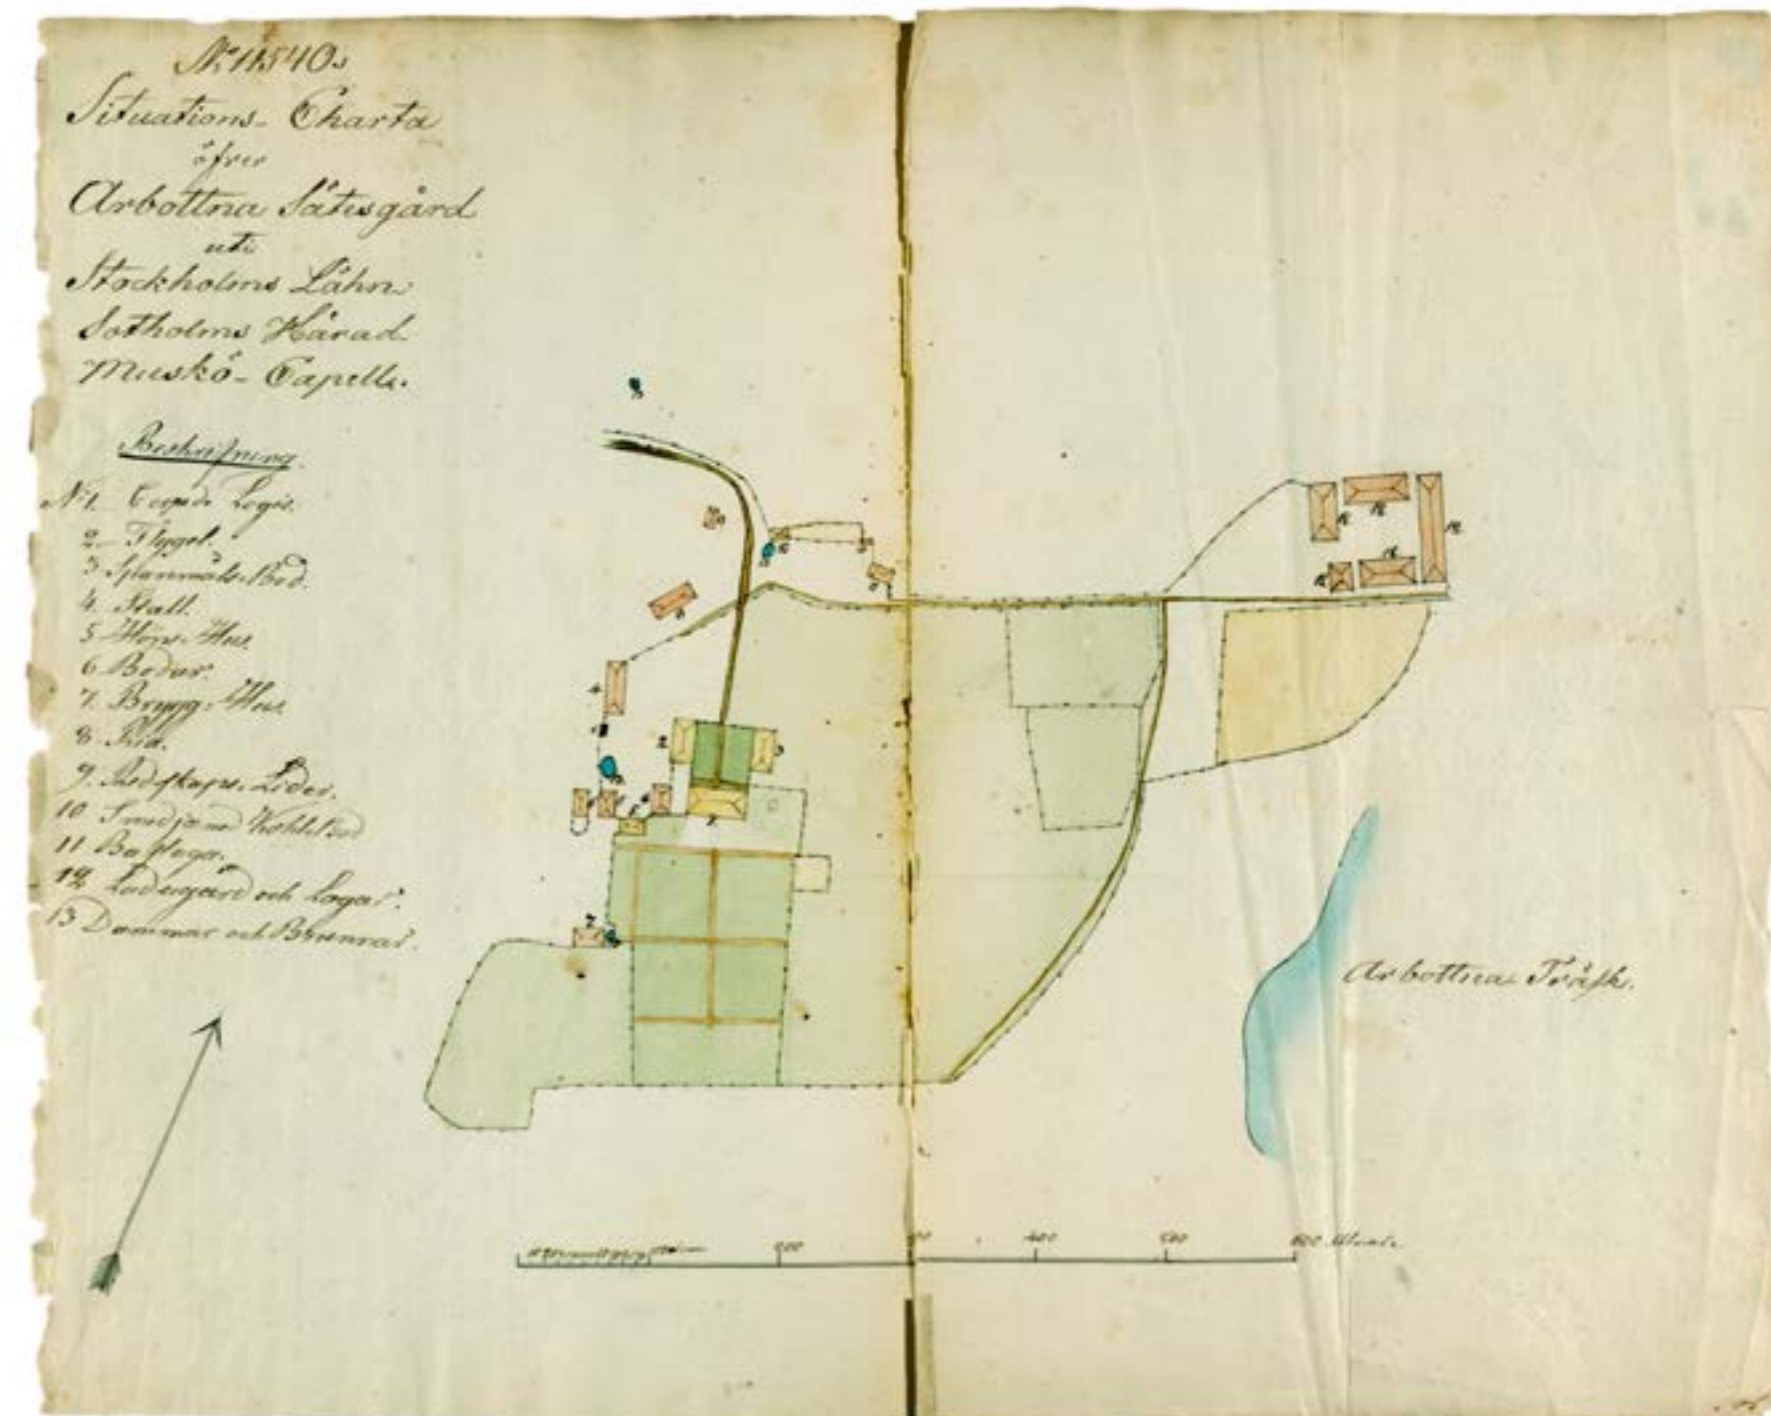 No 11540.
Situations-Charta
öfver
Arbottna Sätesgård
uti
Stockholms Lähn
Sotholms Härad
Muskö-Capell.
Beskrifning.
No 1. Corps de Logis.
2 Flygel.
3 Spanmåls-Bod.
4. Stall.
5
6 Bodar.
7. Brygg-Hus
8. Ria.
9. Redskaps-Lider.
10 Smedja med Kohlbod
11 Bastuga.
12 Ladugård och Logar.
13 Dammar och Brunnar.
Arbottna Träsk.
200 400 500 600 Alnar.